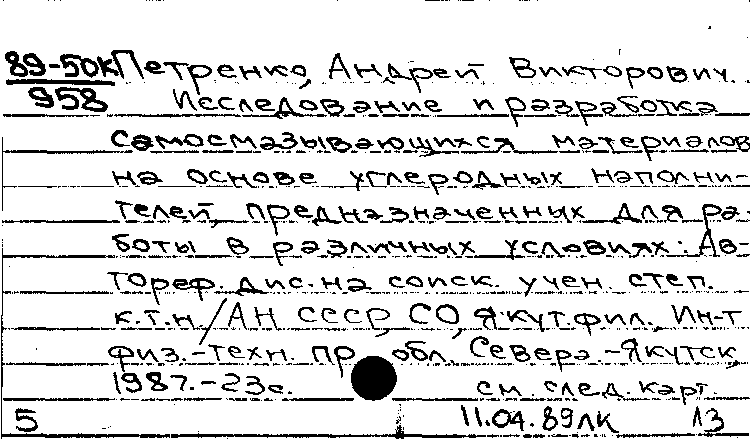 89-50К Петренко, Андрей Викторович.
958 Исследование и разработка
самосмазывающихся материалов
на основе углеродных наполни-
телей, предназначенных для ра-
боты в различных условиях: Ав-
тореф. дис. на соиск. учен. степ.
к.т.н./АН СССР, СО, Якут.фил., Ин-т
физ.-техн. пр обл. Севера.-Якутск,
1987.-23с. см. след. карт.
5 11.04.89ЛК 13